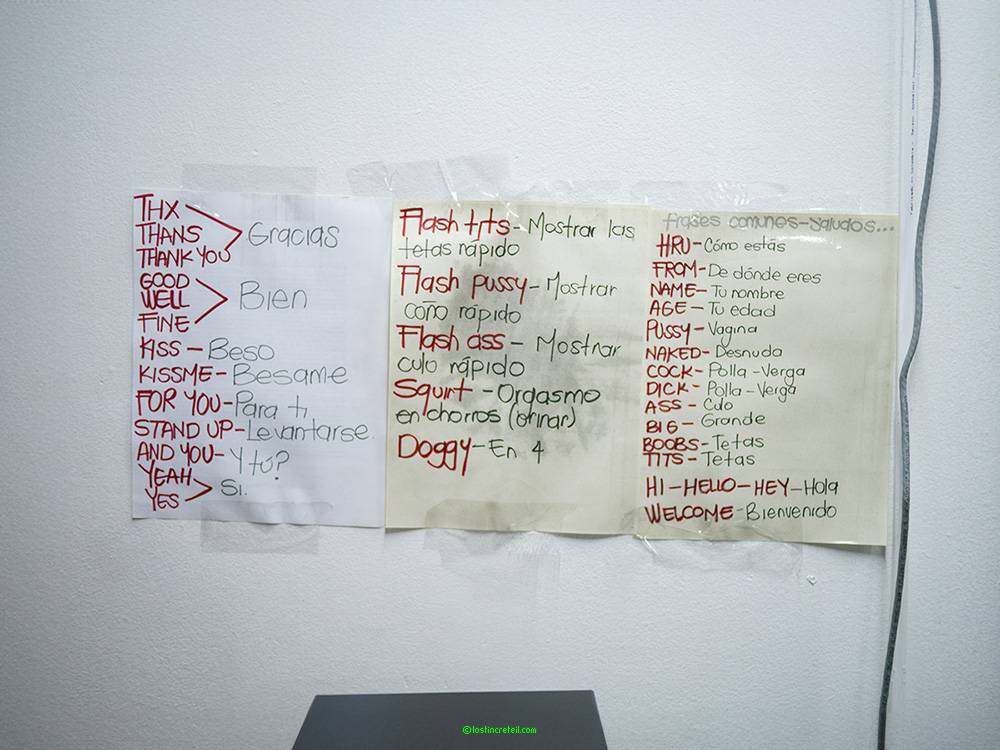 THX
THANS
THANK YOU
Gracias
GOOD
WELL
FINE
Bien
KISS – Beso
KISSME – Besame
FOR YOU – Para ti
STAND UP – Levantarse
AND YOU – Y tú?
YEAH
YES
Si.
Flash tits – Mostrar las
tetas rápido
Flash pussy – Mostrar
coño rápido
Flash ass – Mostrar
culo rápido
Squirt – Orgasmo
en chorros (orinar)
Doggy – En 4
frases comunes-saludos...
HRU – Cómo estás
FROM – De dónde eres
NAME – Tu nombre
AGE – Tu edad
PUSSY – Vagina
NAKED – Desnuda
COCK – Polla – Verga
DICK – Polla – Verga
ASS – Culo
BIG – Grande
BOOBS – Tetas
TITS – Tetas
HI – HELLO – HEY – Hola
WELCOME – Bienvenido
©lostincreteil.com